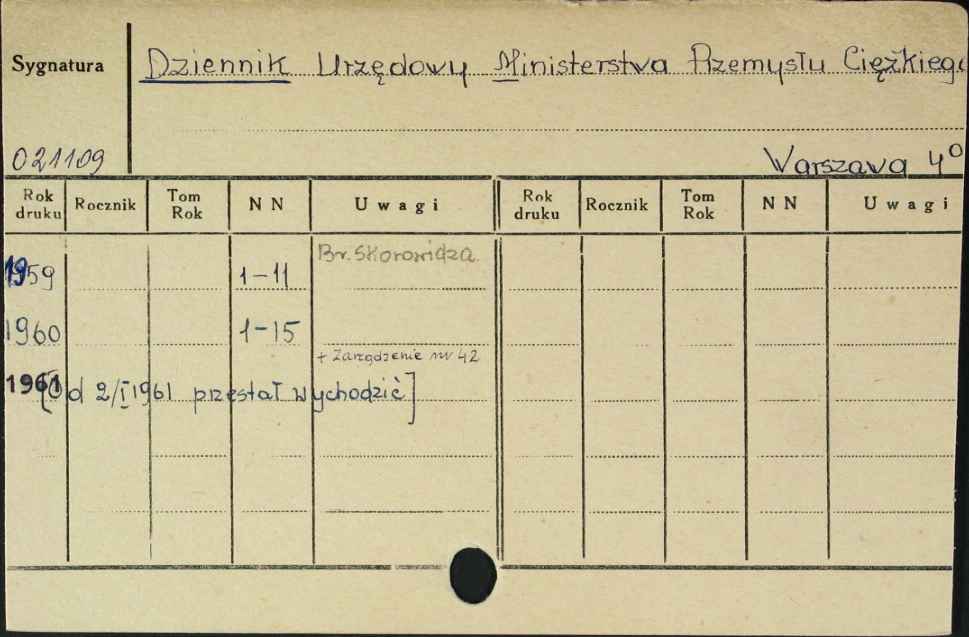 Sygnatura
Dziennik Urzędowy Ministerstwa Przemysłu Ciężkiego
021109
Warszawa 4°
Rok druku Rocznik Tom Rok NN Uwagi Rok druku Rocznik Tom Rok NN Uwagi
Br. Skorowidza.
1959 1-11
1960 1-15
+ Zarządzenie nr 42
1961
[Od 2/I 1961 przestał wychodzić]